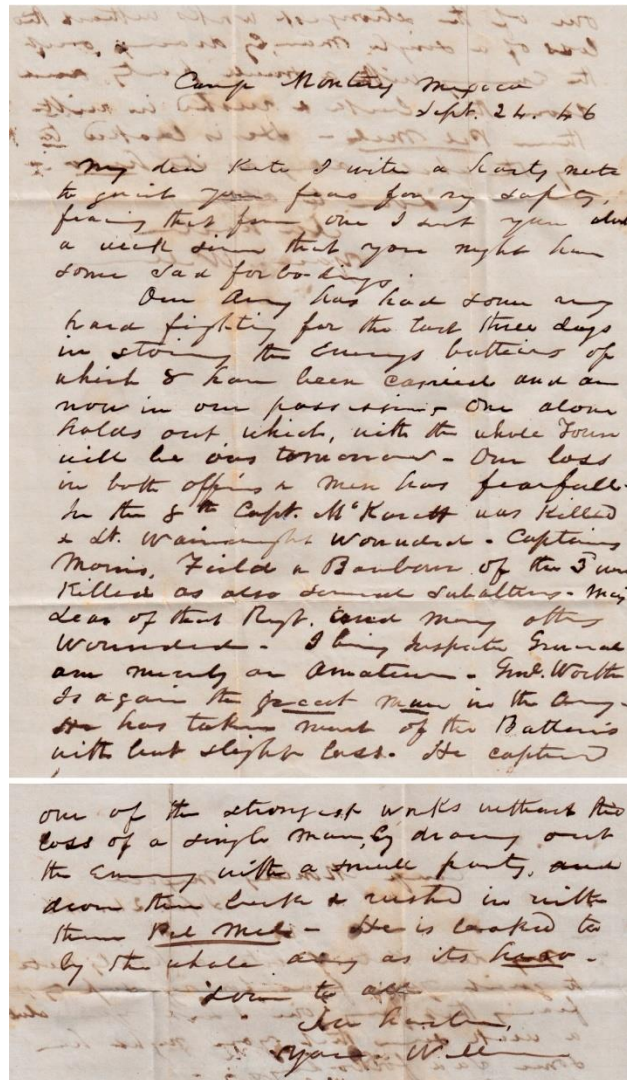 Camp Monterey Mexico
Sept. 24. 46
My dear Kate I write a hasty note
to quiet your fears for my safety,
fearing that from one I sent you about
a week since that you might have
some sad forbodings.
Our Army has had some very
hard fighting for the last three days
in storming the Enemys batteries of
which 8 have been carried and are
now in our possession, One alone
holds out which, with the whole Town
will be ours tomorrow - Our loss
in both officers & men has fearfull -
In the 8th Capt. McKavett was Killed
& Lt. Wainwright Wounded - Captains
Morris, Field & Barbour of the 3 were
Killed as also several subalterns - Maj
Lear of that Regt. and many others
Wounded - I being Inspector General
am merely an Amateur - Genl. Worth
Is again the great man in the Army -
He has taken most of the Batteries
with but slight loss. He captured
one of the strongest works without the
loss of a single man, by drawing out
the Enemy with a small party, and
drove them back & rushed in with
them Pel Mel - He is looked to
by the whole army as its hero -
Love to all
In haste,
Yours